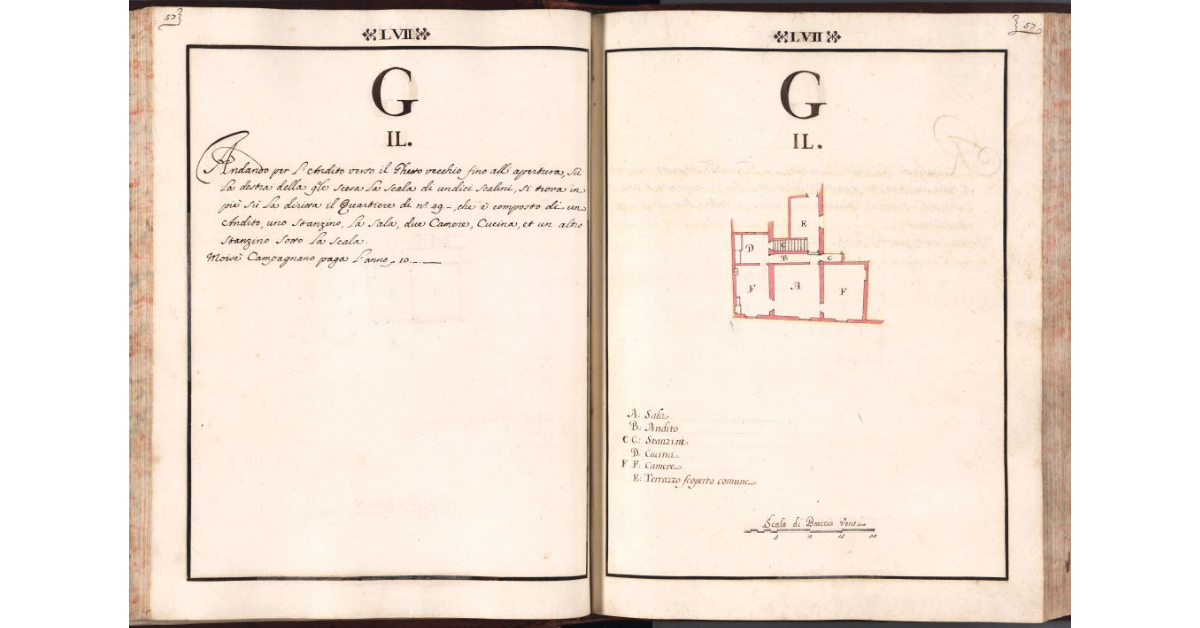 57
LVII
G
IL.
Andando per L'Andito verso il Gheto vecchio fino all'apertura, sù
la destra della qle scesa la scala di undici scalini, si trova in
piè sù la diritta il Quartiere di n.º 49, che è composto di un
Andito, uno Stanzino, la Sala, due Camere, Cucina, et un altro
Stanzino sotto la scala.
Moisè Campagnano paga l'anno 10
57
LVII
G
IL.
E
D
C
B
C
F
A
F
A: Sala
B: Andito
C C: Stanzini
D: Cucina
F F: Camere
E: Terrazzo scoperto comune
Scala di Braccia Venti
5 10 15 20